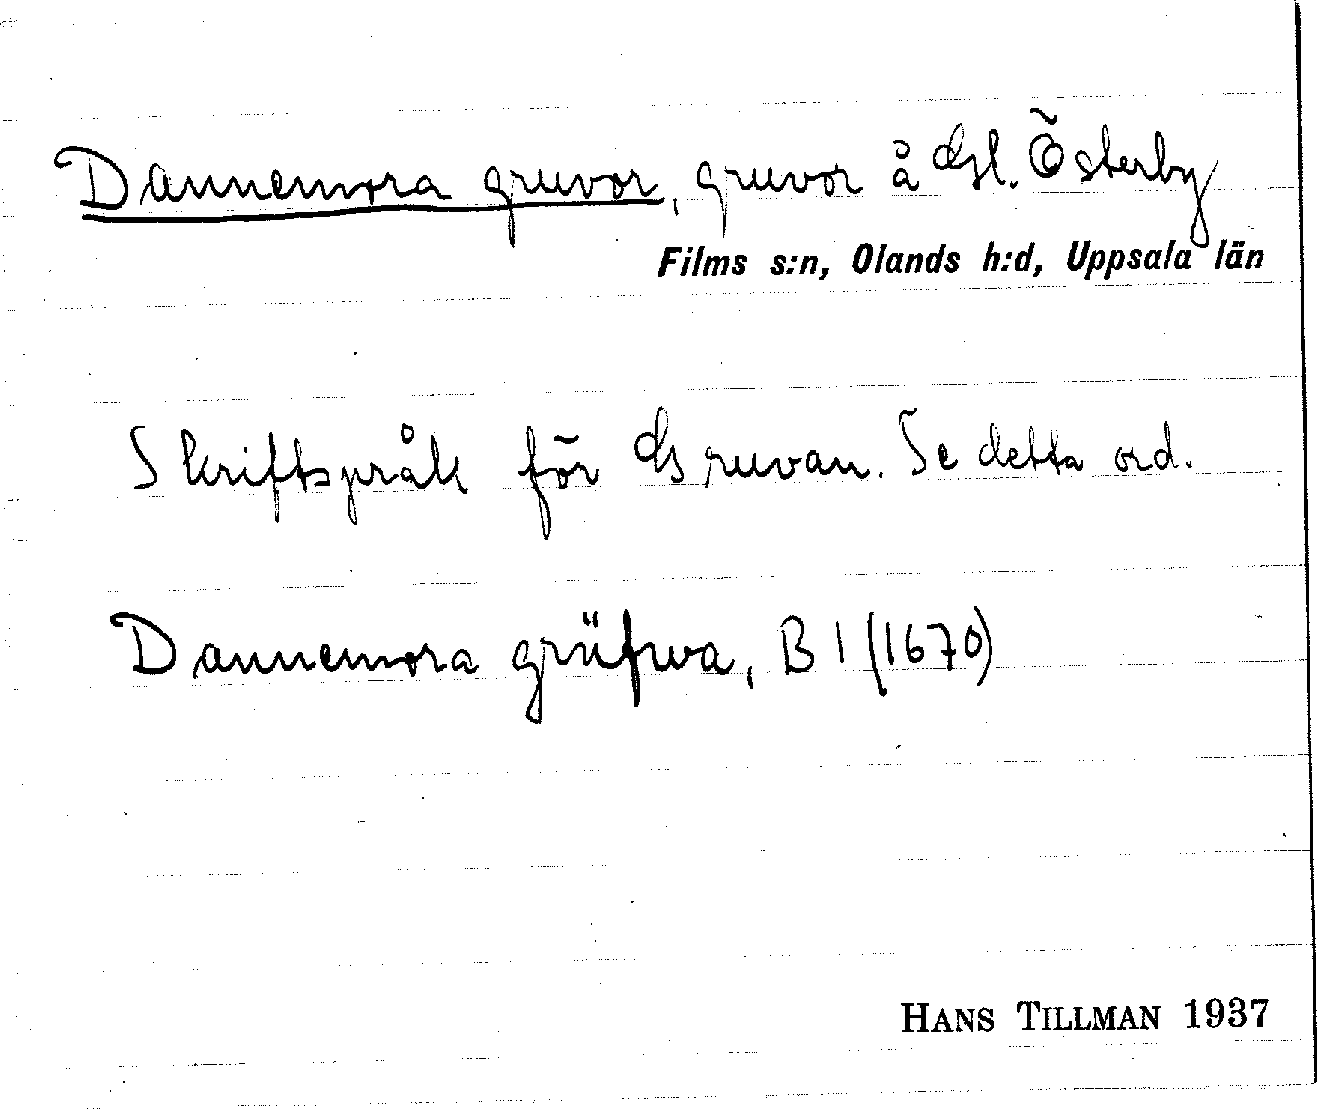 Dannemora gruvor, gruvor å Gl. Österby
Films s:n, Olands h:d, Uppsala län
Skriftspråk för Gruvan. Se detta ord.
Dannemora grüfwa, B 1 (1670)
HANS TILLMAN 1937